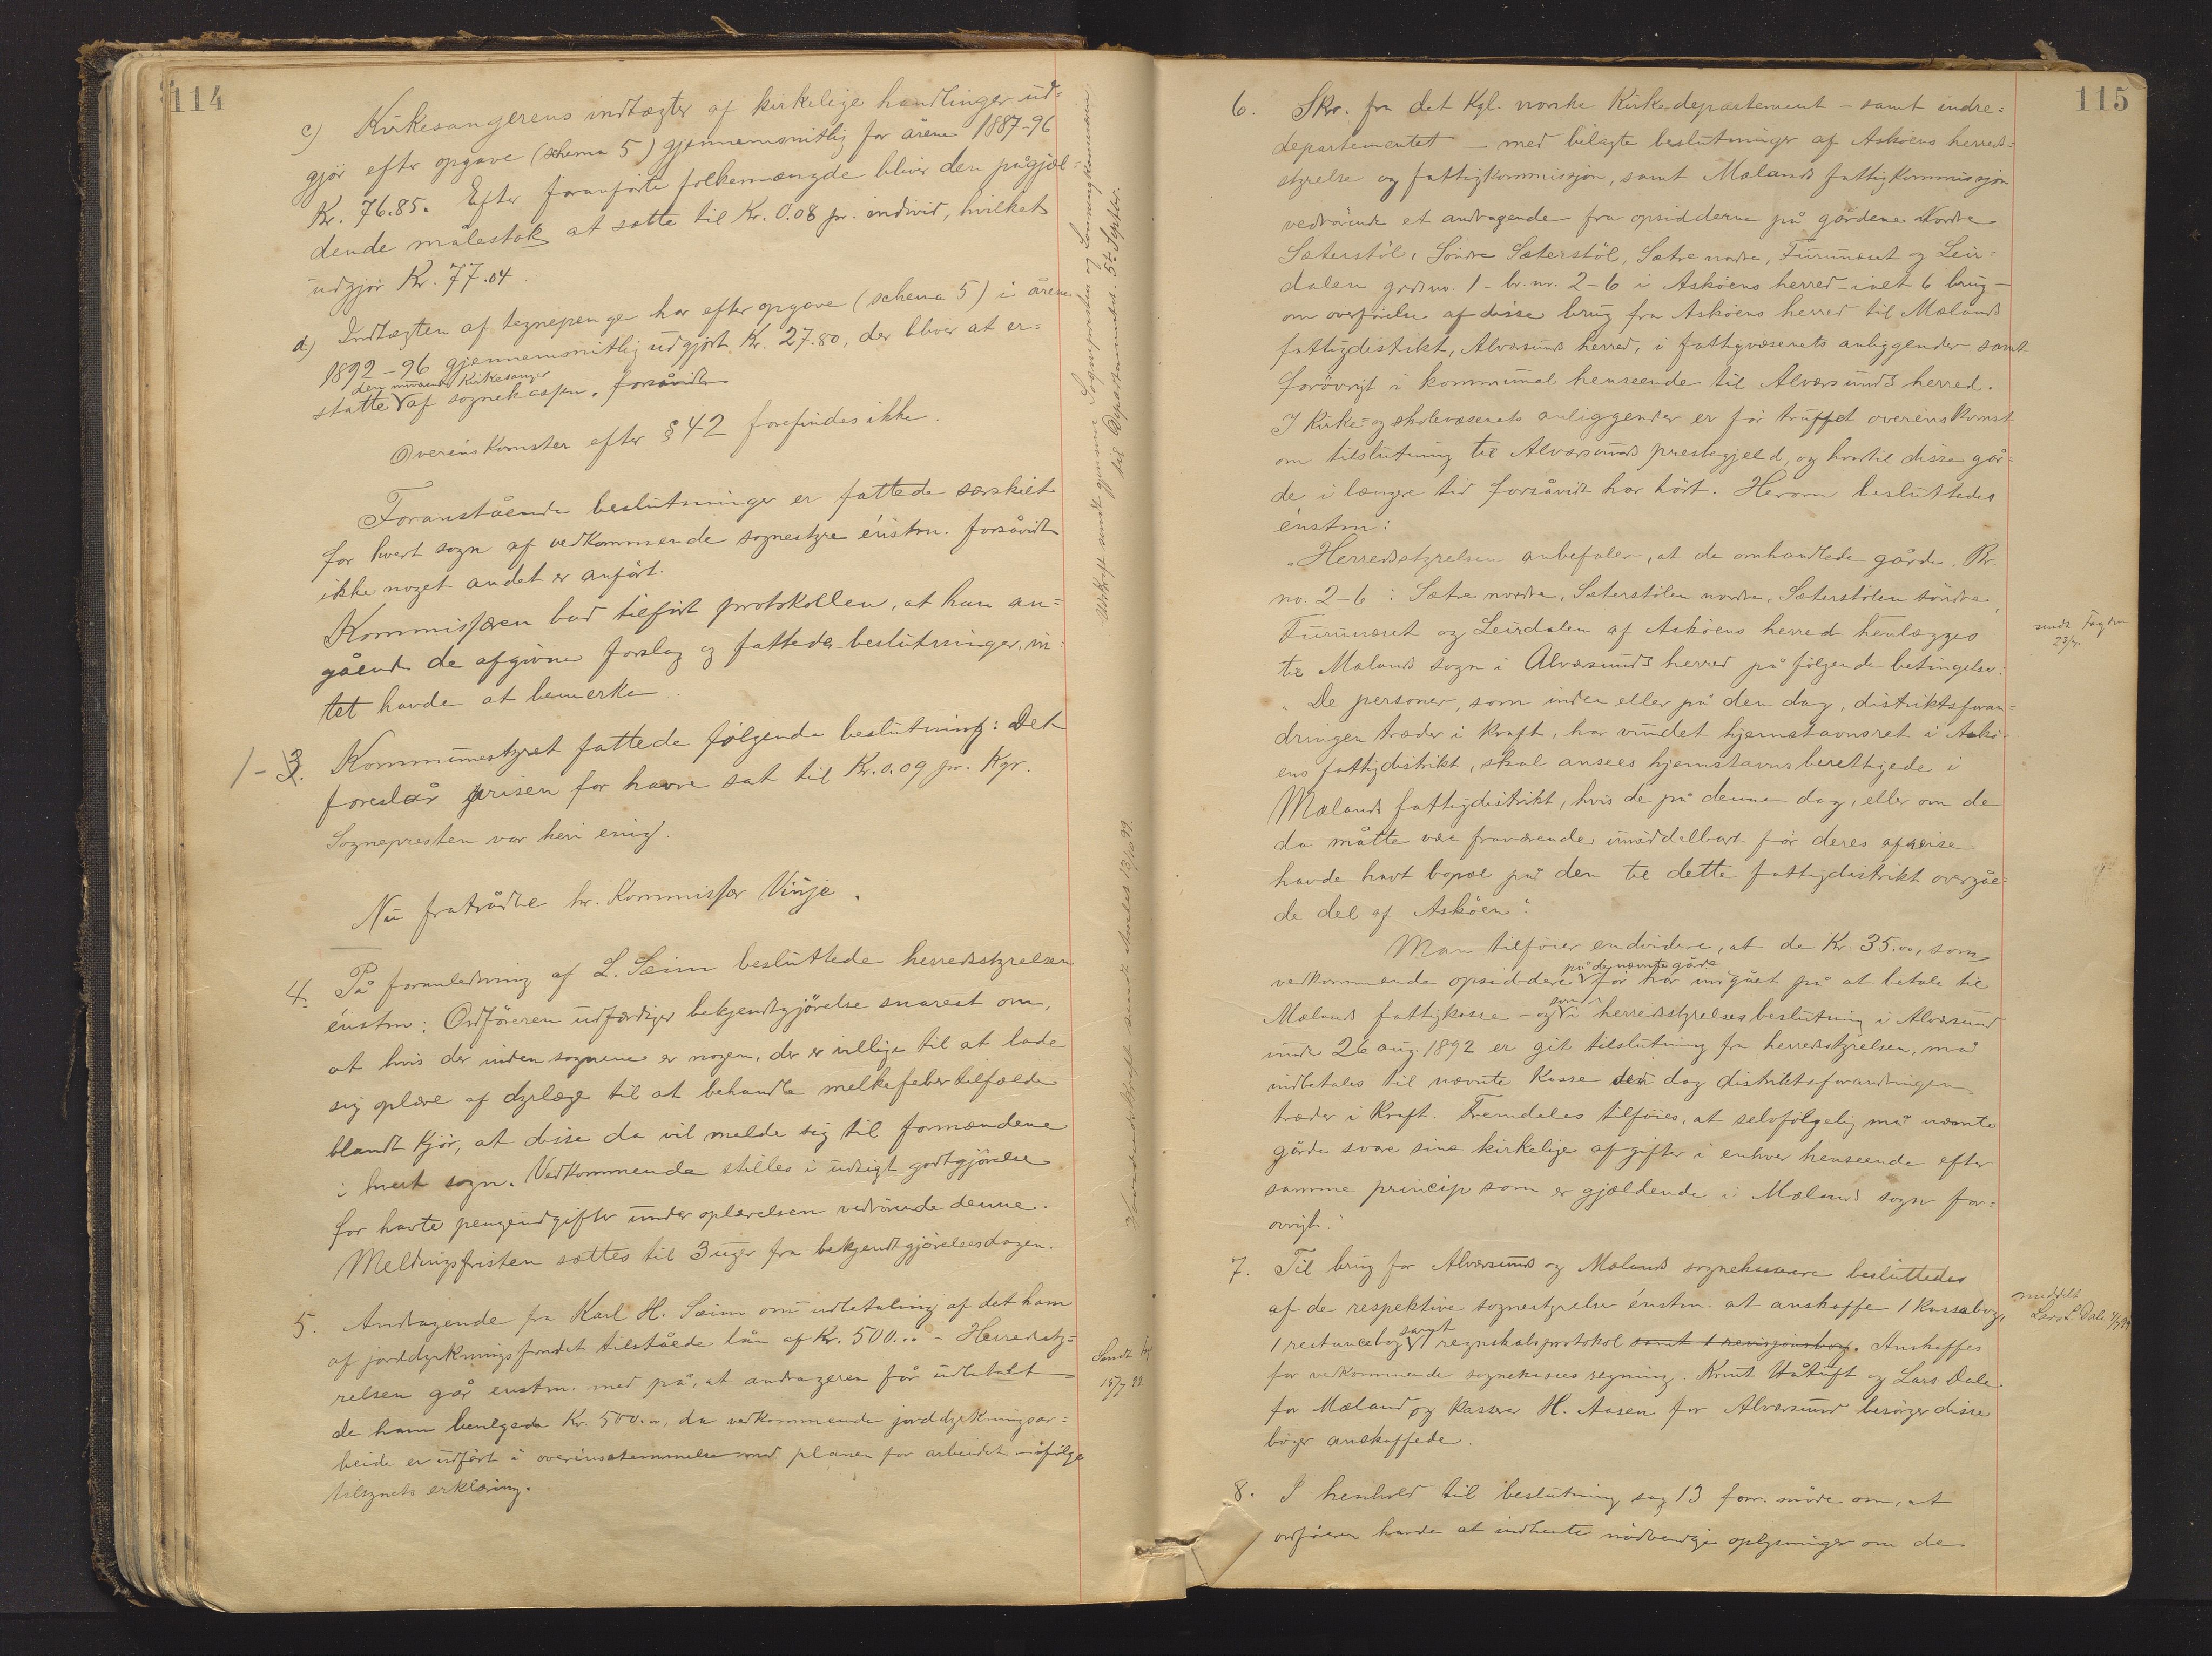 114
c) Kirkesangerens indtægter af kirkelige handlinger ud-
gjør efter opgave (schema 5) gjennemsnitlig for årene 1887-96
Kr. 76.85. Efter foranførte folkemængde bliver den pågjæl-
dende målestok at sætte til Kr. 0.08 pr. individ, hvilket
udgjør Kr. 77.04
d) Indtægten af tegnepenge har efter opgave (schema 5) i årene
1892-96 gjennemsnitlig udgjort Kr. 27.80, der bliver at er-
den nuværende Kirkesanger
statte af sognekassen. forsåvidt
Overénskomster efter § 42 forefindes ikke.
Foranstående beslutninger er fattede særskilt
for hvert sogn af vedkommende sognestyre énstm. forsåvidt
ikke noget andet er anført.
Kommissæren bad tilført protokollen, at han an-
gående de afgivne forslag og fattede beslutninger in-
tet havde at bemerke.
1 - 3. Kommunestyret fattede følgende beslutning: Det
foreslår prisen for havre sat til Kr. 0.09 pr. Kgr.
Sognepresten var heri enig.
Nu fratrådte hr. Kommissær Vinje.
4. På foranledning af L. Seim besluttede herredsstyrelsen
énstm: Ordføreren udfærdiger bekjendtgjørelse snarest om,
at hvis der inden sognene er nogen, der er villige til at lade
sig oplære af dyrlæge til at behandle melkefebertilfælde
blandt Kjør, at disse da vil melde sig til formændene
i hvert sogn. Vedkommende stilles i udsigt godtgjørelse
for havte pengeudgifter under oplærelsen vedrørende denne.
Meldingsfristen sættes til 3 uger fra bekjendtgjørelsesdagen.
5. Andragende fra Karl H. Seim om udbetaling af det ham
af jorddyrkningsfondet tilståede lån af Kr. 500.00 - Herredsty-
relsen går enstm. med på, at andrageren får udbetalt
de ham bevilgede Kr. 500.00, da vedkommende jorddyrkningsar-
beide er udført i overénsstemmelse med planen for arbeidet - ifølge
tilsynets erklæring.
Udskrift sendt gjennem Sognepresten og Lønningskommissionen
til Departementet 5te Septbr.
sendt Amtet 13/10 99.
Sendt
15/7 99
115
6. Skr. fra det Kgl. norske Kirkedepartement - samt indre-
departementet - med bilagte beslutninger af Askøens herreds-
styrelse og fattigkommissjon, samt Mælands fattigkommissjon
vedrørende et andragende fra opsidderne på gårdene Nordre
Sæterstøl, Søndre Sæterstøl, Sætre nordre, Furunæset og Leir-
dalen gards no. 1 - br. nr. 2-6 i Askøens herred - ialt 6 brug -
om overførelse af disse brug fra Askøens herred til Mælands
fattigdistrikt, Alværsunds herred, i fattigvæsenets anliggender samt
forøvrigt i kommunal henseende til Alværsunds herred.
I Kirke- og skolevæsenets anliggender er før truffet overénskomst
om tilslutning til Alværsunds prestegjeld, og hvortil disse går-
de i længre tid forsåvidt har hørt. Herom besluttedes
énstm:
„Herredsstyrelsen anbefaler, at de omhandlede gårde, Br.
no. 2-6: Sætre nordre, Sæterstølen nordre, Sæterstølen søndre,
Furunæset og Leirdalen af Askøens herred henlægges
til Mælands sogn i Alværsunds herred på følgende betingelse:
„De personer, som inden eller på den dag, distriktsforan-
dringen træder i kraft, har vundet hjemstavnsret i Askø-
ens fattigdistrikt, skal ansees hjemstavnsberettigede i
Mælands fattigdistrikt, hvis de på denne dag, eller om de
da måtte være fraværende, umiddelbart før deres afreise
havde havt bopæl på den til dette fattigdistrikt overgåe-
de del af Askøen“.
Man tilføier endvidere, at de Kr. 35.00, som
på de nævnte gårde
vedkommende opsiddere før har indgået på at betale til
som
Mælands fattigkasse - og i herredsstyrelsesbeslutning i Alværsund
under 26 aug. 1892 er git tilslutning fra herredsstyrelsen, må
indbetales til nævnte Kasse den dag distriktsforandringen
træder i Kraft. Fremdeles tilføies, at selvfølgelig må nævnte
gårde svare sine kirkelige afgifter i enhver henseende efter
samme princip som er gjældende i Mælands sogn for-
øvrigt.
7. Til brug for Alværsunds og Mælands sognekasser besluttedes
af de respektive sognestyrelser énstm. at anskaffe 1 kassabog,
samt
1 restancebog 1 regnskabsprotokol samt 1 revisjonsbog. Anskaffes
for vedkommende sognekasses regning. Knut Håtuft og Lars Dale
for Mæland og Kasserer H. Aasen for Alværsund besørger disse
bøger anskaffede.
8. I henhold til beslutning sag 13 forr. møde om, at
ordføreren havde at indhente nødvendige oplysninger om de
sendt Fogden
23/7.
meddelt
Lars L. Dale